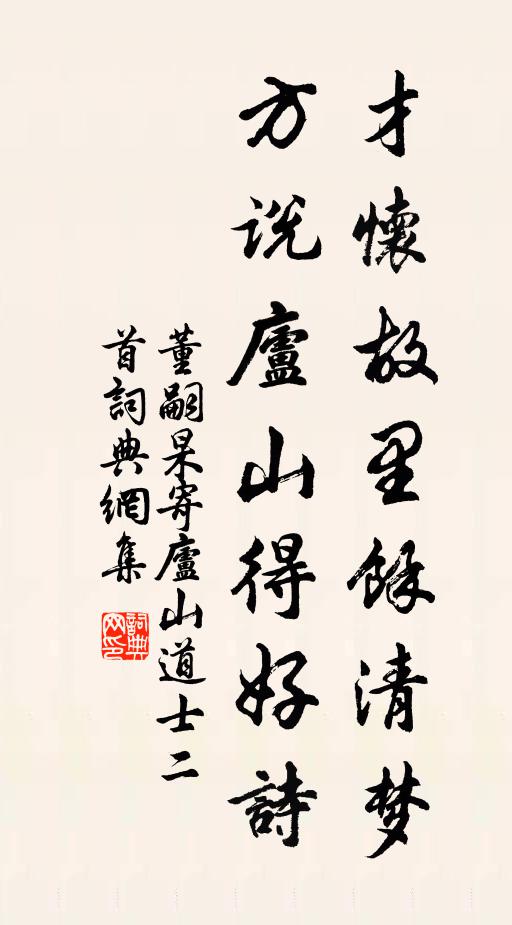 才懷故里餘清梦
方说廬山得好詩
董嗣杲寄廬山道士二
首詞典網集
詞典
网印